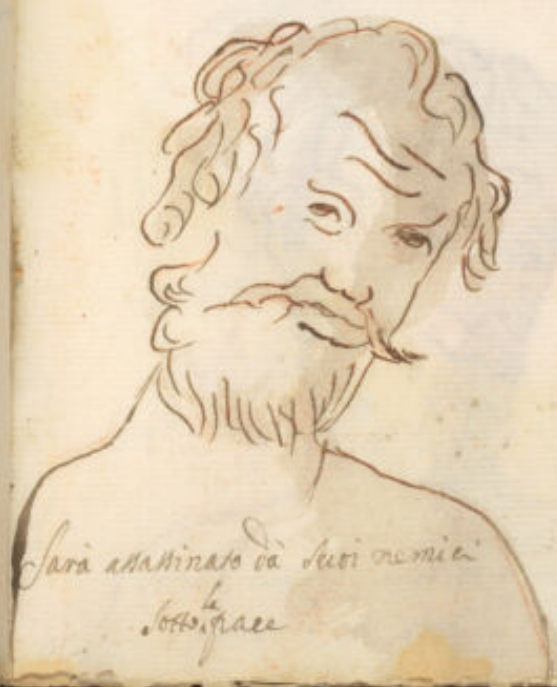 Sarà assassinato dà suoi nemici
sotto la pace